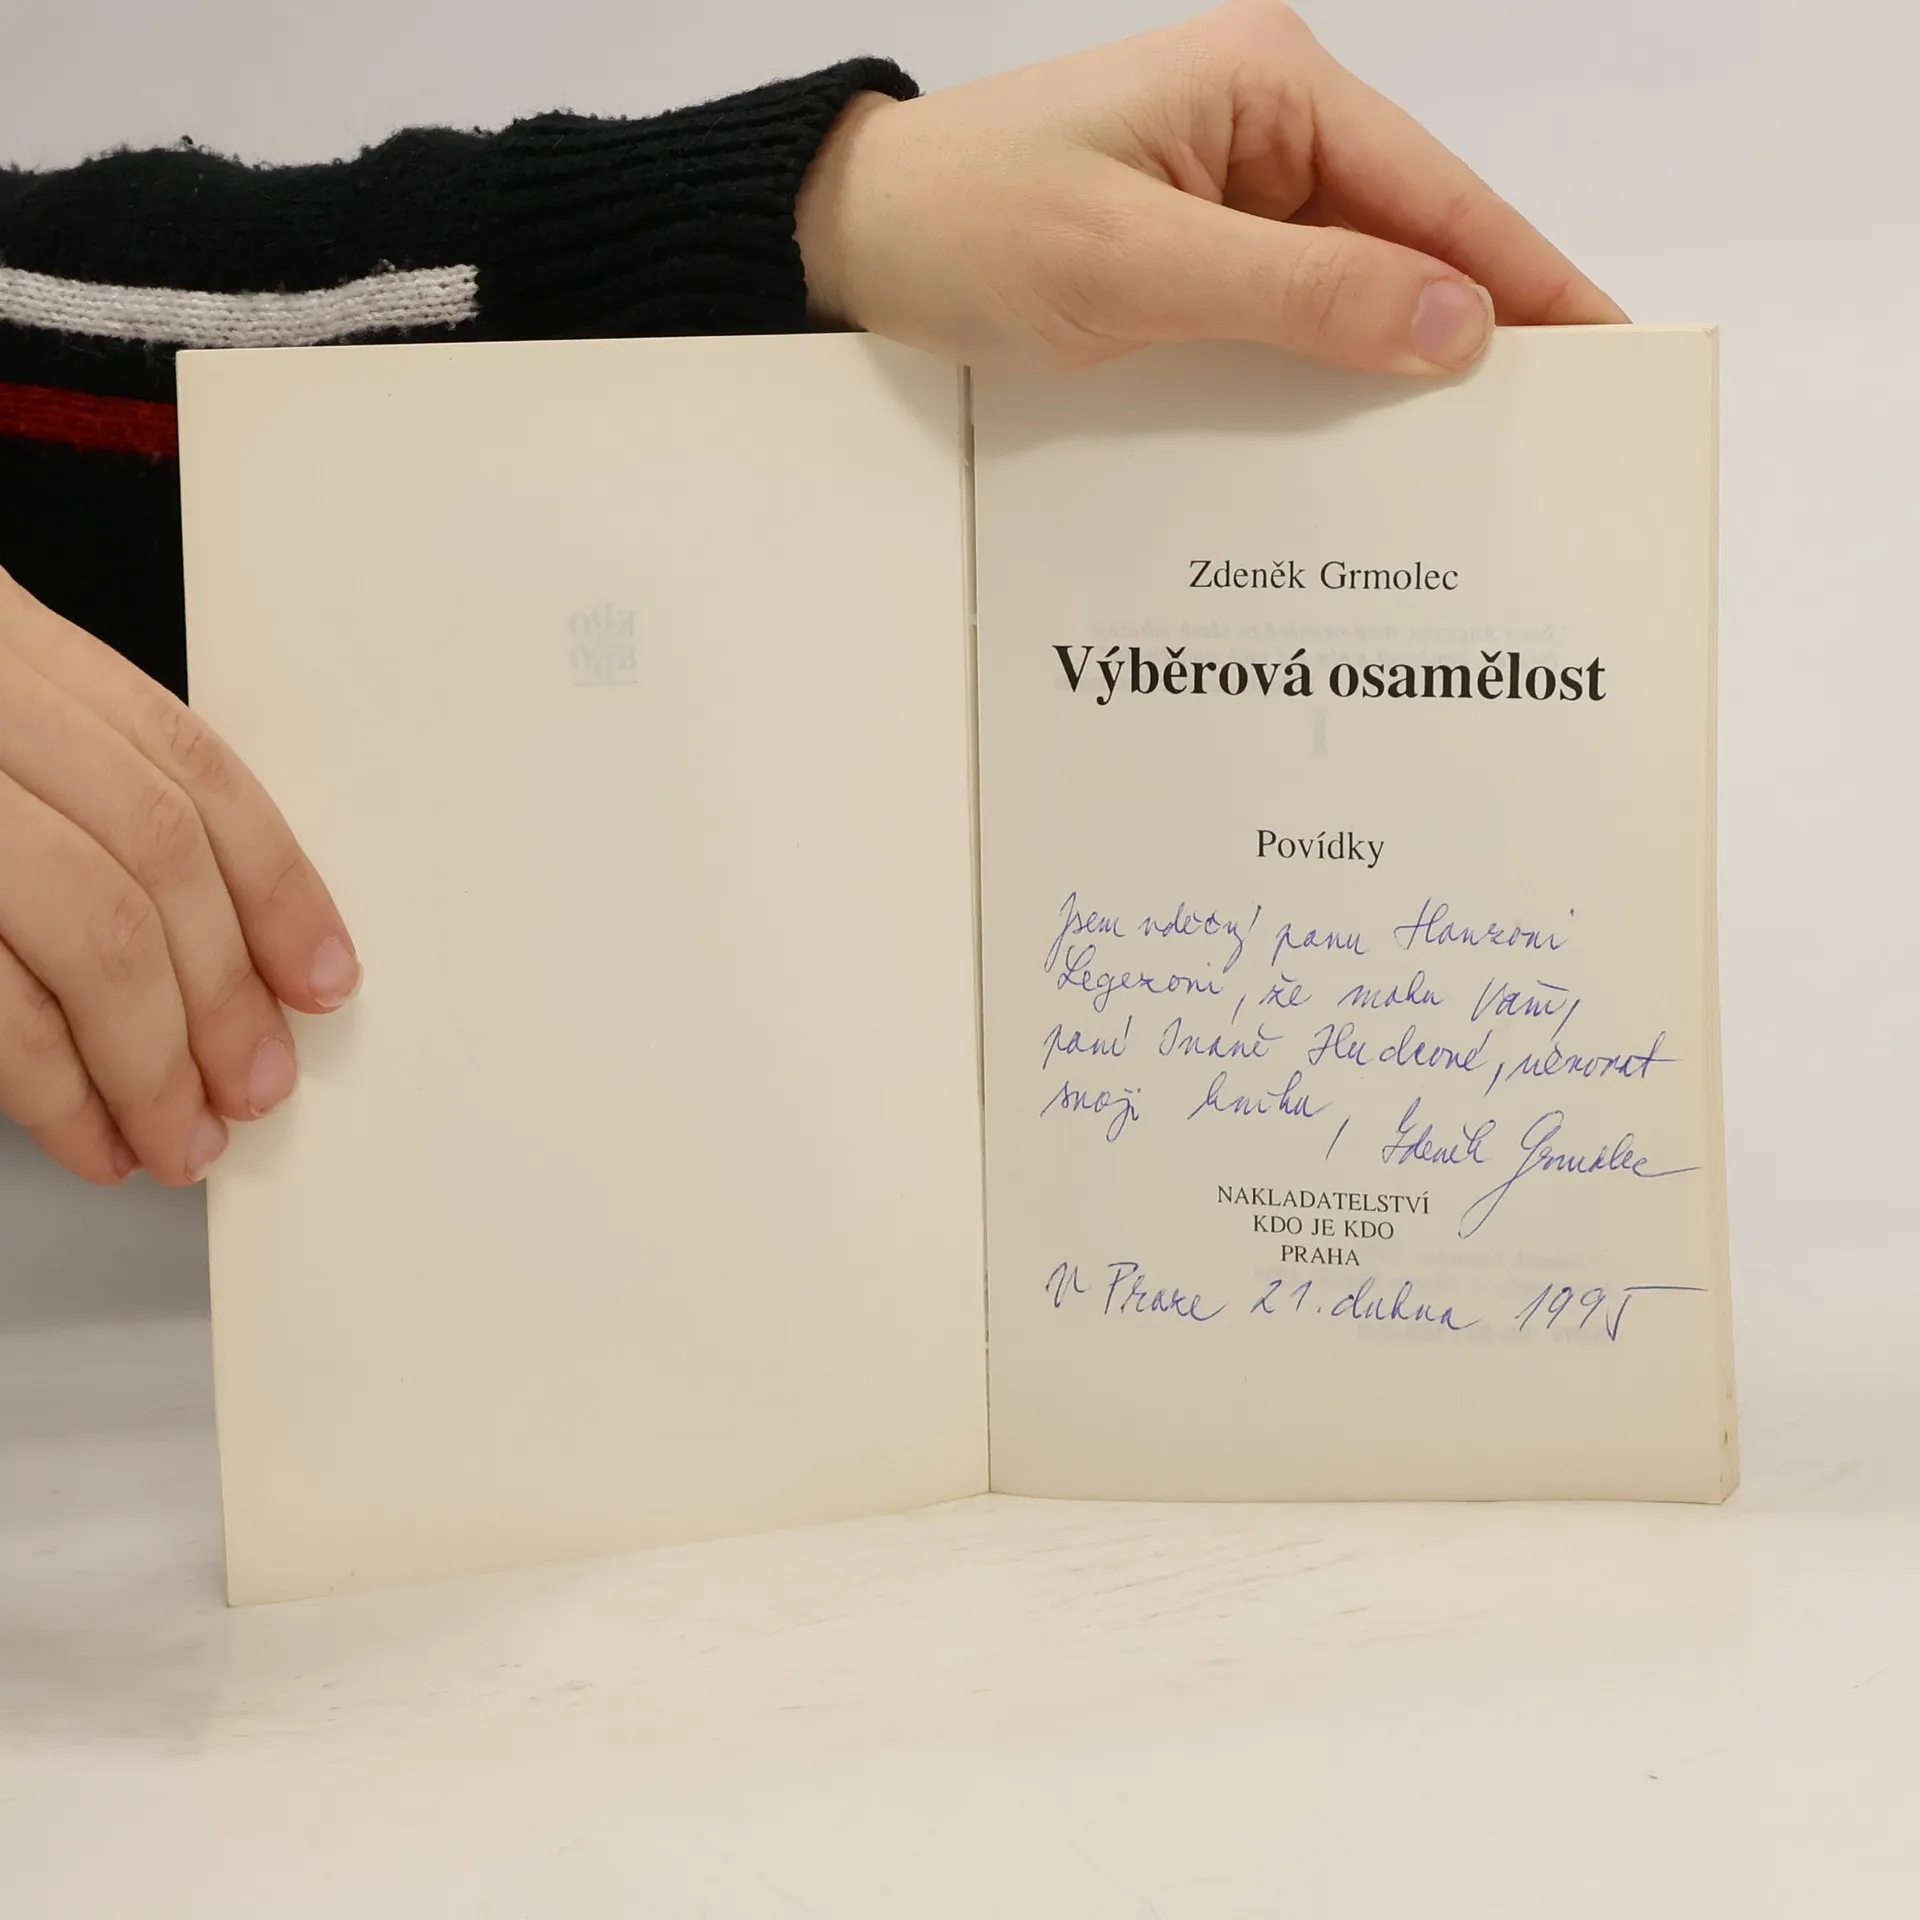 Zdeněk Grmolec
Výběrová osamělost
Povídky
Jsem vděčný panu Honzovi
Legezovi, že mohu Vám,
paní Ivaně Hudcové, věnovat
svoji knihu, Zdeněk Grmolec
NAKLADATELSTVÍ
KDO JE KDO
PRAHA
V Praze 21. dubna 1995
KDO
KDO